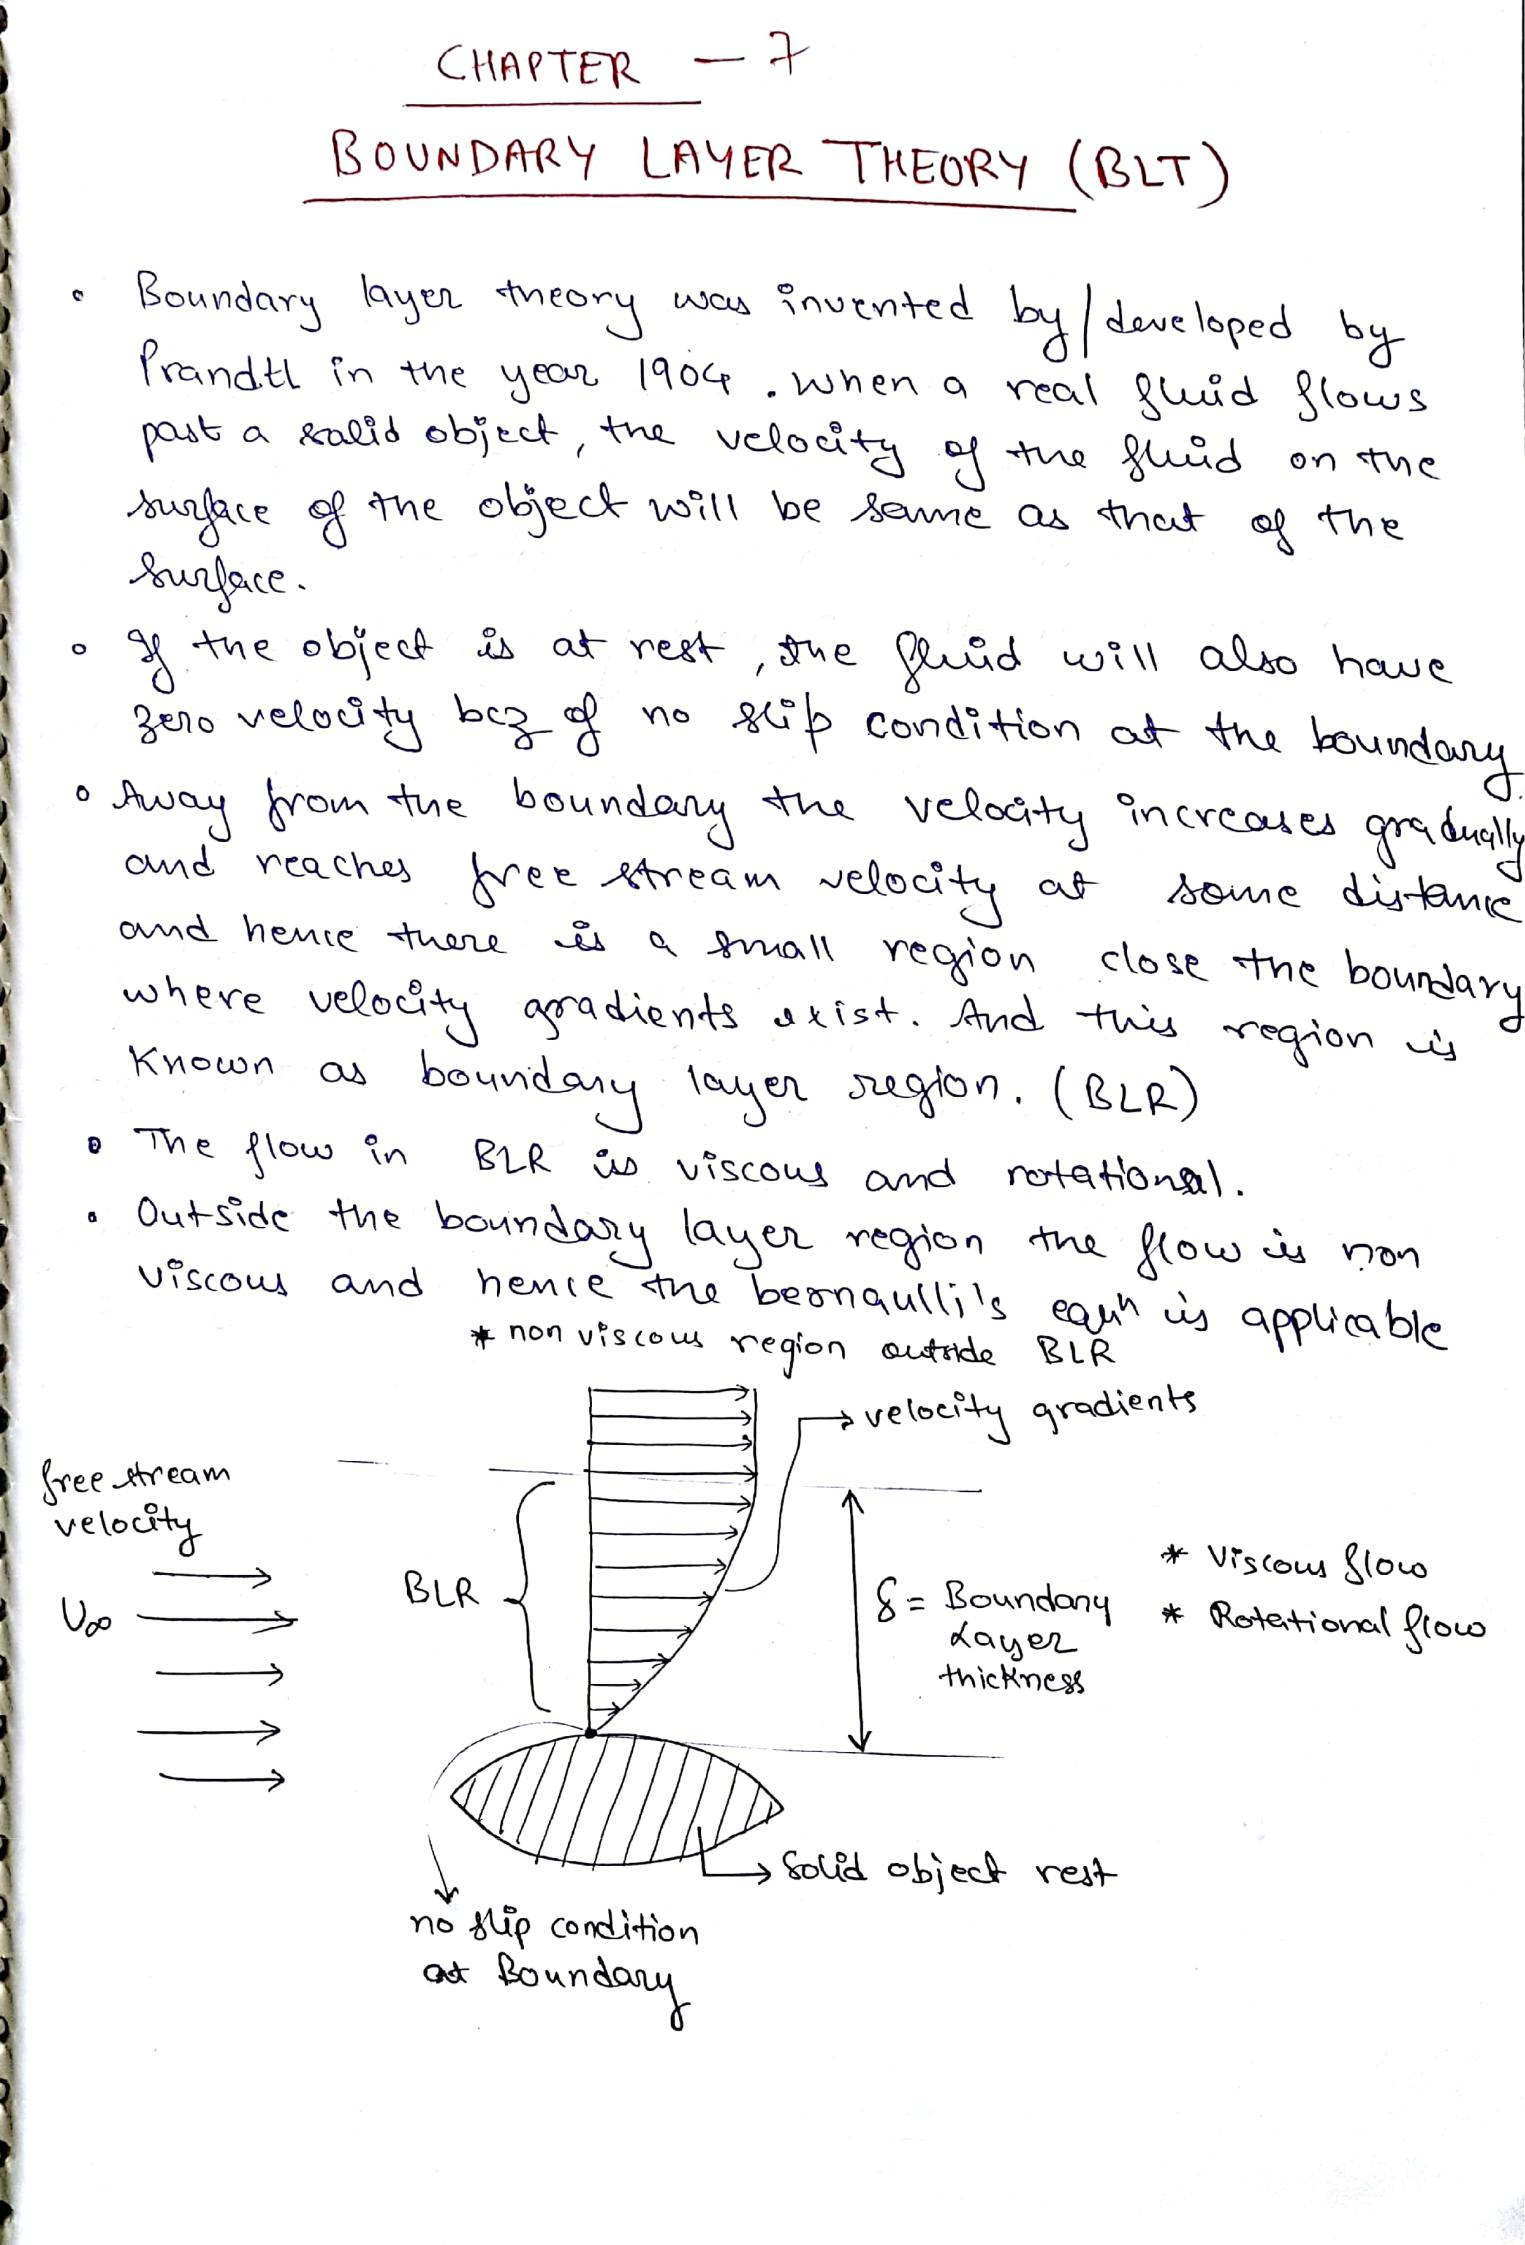 CHAPTER - 7
BOUNDARY LAYER THEORY (BLT)
Boundary layer theory was invented by/developed by
Prandtl in the year 1904. When a real fluid flows
past a solid object, the velocity of the fluid on the
surface of the object will be same as that of the
surface.
If the object is at rest, the fluid will also have
zero velocity bcz of no slip condition at the boundary.
Away from the boundary the velocity increases gradually
and reaches free stream velocity at some distance
and hence there is a small region close the boundary
where velocity gradients exist. And this region is
Known as boundary layer region. (BLR)
The flow in BLR is viscous and rotational.
Outside the boundary layer region the flow is non
viscous and hence the bernaulli's equn is applicable
* non viscous region outside BLR
velocity gradients
free stream
velocity
U∞
BLR
δ = Boundary
Layer
thickness
* Viscous flow
* Rotational flow
Solid object rest
no slip condition
at Boundary